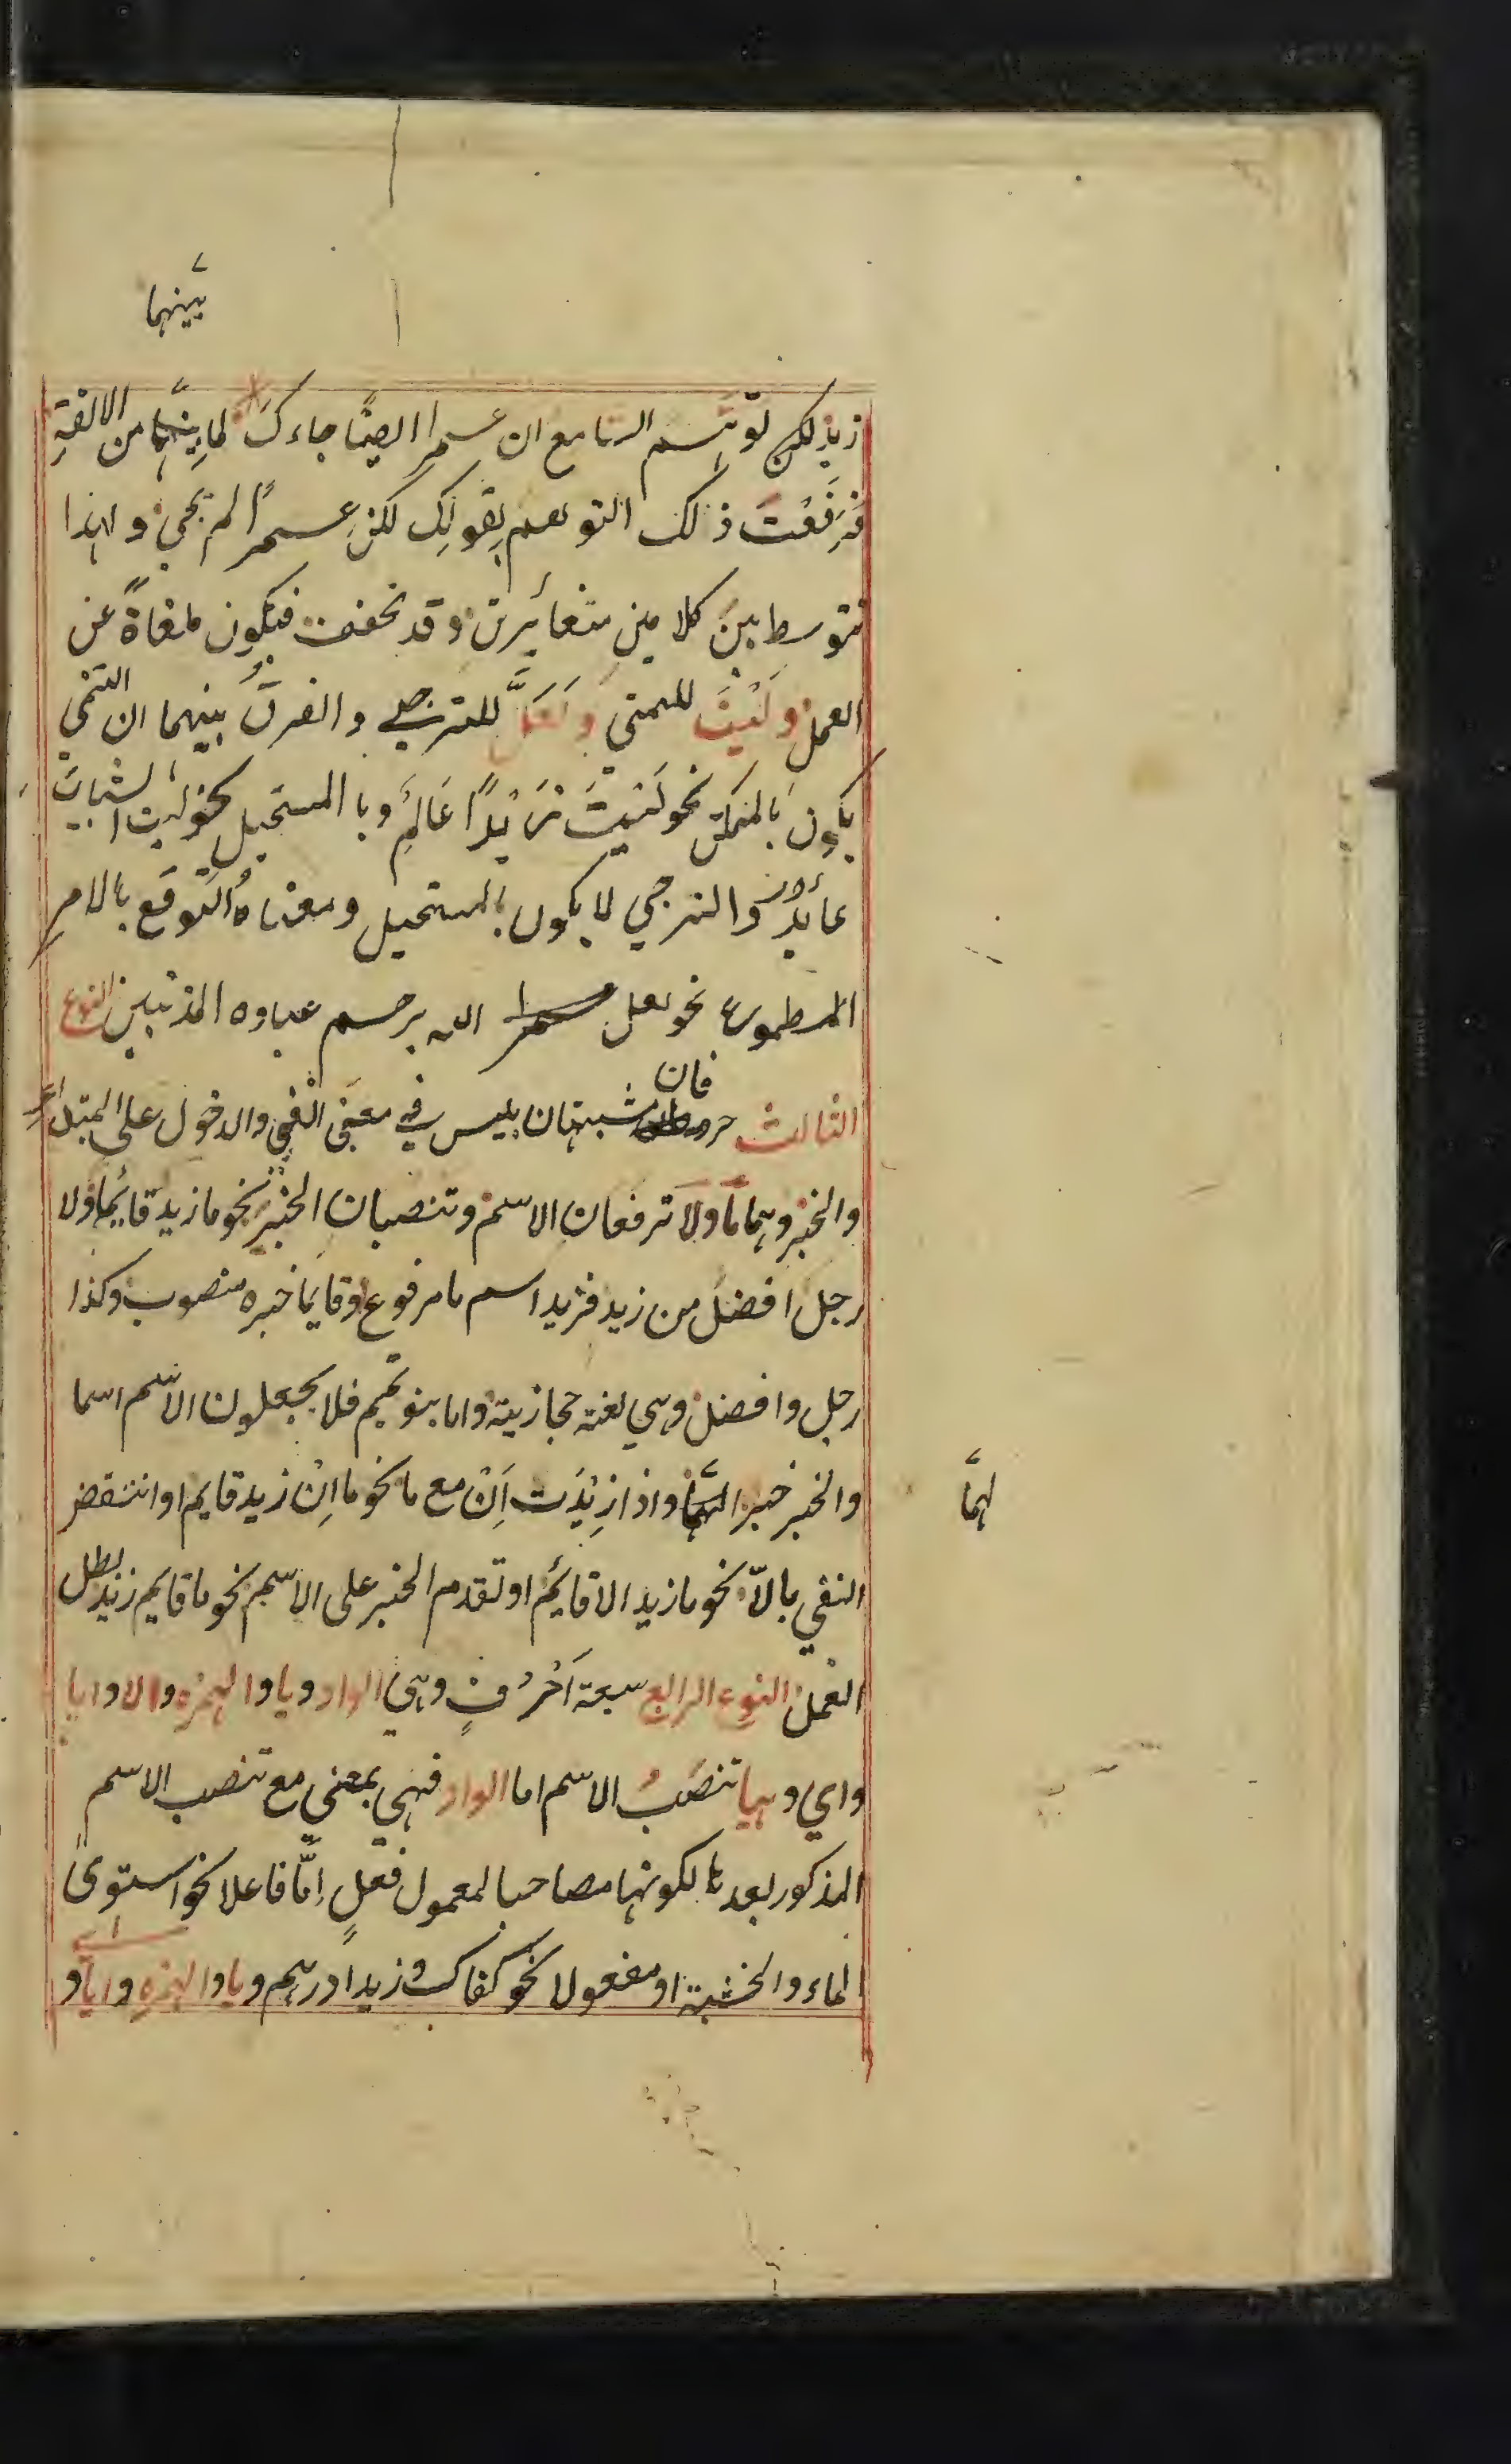 بينهما
زيد لكن توهم السامع ان عمرا ايضًا جاءك لما بينهما من الالفةِ
فَرَفَعْتَ ذلك التوهم بقولِك لكنِ عمرًا لم يجي ولهذا
تتوسط بين كلامين متغائرين وقد تخفف فيكون ملغاةً عن
العمل وَلَيْتَ للتمني وَلَعَلَّ للترجي والفرقُ بينهما ان التمني
يكون بالممكن نحو لَيْتَ زَيْدًا عَالمٌ وبا المستحيل نحو ليت الشباب
عايدٌ والترجي لا يكون بالمستحيل ومعناهُ التوقع بالامرِ
نحو لعل عمرا الله يرحم عباده المذنبين النوع
فان
الثالث حرفان مشبهتان بليس في معنى النفي والدخول على المبتداءِ
والخبر وهما مَا ولَا ترفعان الاسم وتنصبان الخبر نحو ما زيد قايما ولا
رجل افضلَ من زيد فزيد اسم ما مرفوع وقايما خبره منصوب وكذا
رجل وافضل وهي لغة حجازية واما بنو تميم فلا يجعلون الاسم اسما
والخبر خبرا لهما واذا زِيْدَت اِنْ مع ما نحو ما اِنْ زيد قايم او انتقض
لهمَا
النفي بالّا نحو ما زيد الا قايمٌ او تقدم الخبر على الاسم نحو ما قايم زيد بطل
العمل النوع الرابع سبعة اَحْرُفٍ وهي الواو ويا والهمزه والا وايا
واي وهيا تنصَبُ الاسم اما الواو فهي بمعنى مع تنصب الاسم
المذكور بعدها لكونها مصاحبا لمعمول فعلٍ اِمَّا فاعلا نحو استوى
الماء والخشبة او مفعولا نحو كفاك وزيدا درهم ويا والهمزه وايا و